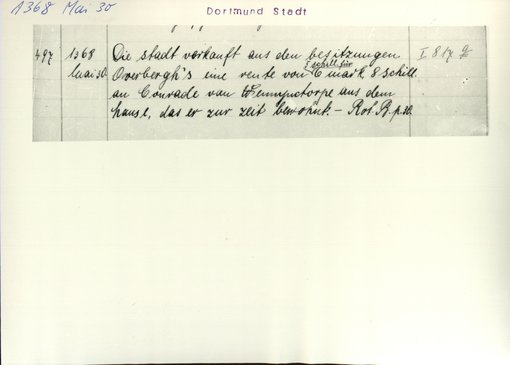 1368 Mai 30
Dortmund Stadt
497 1368 Die stadt verkauft aus den besitzungen I 817
Mai 30. Overbergh's eine rente von 6 mark 8 schill.
an Conrade van Wennynctorpe aus dem
hause, das er zur zeit bewohnt. – Rot. B. p. 20.